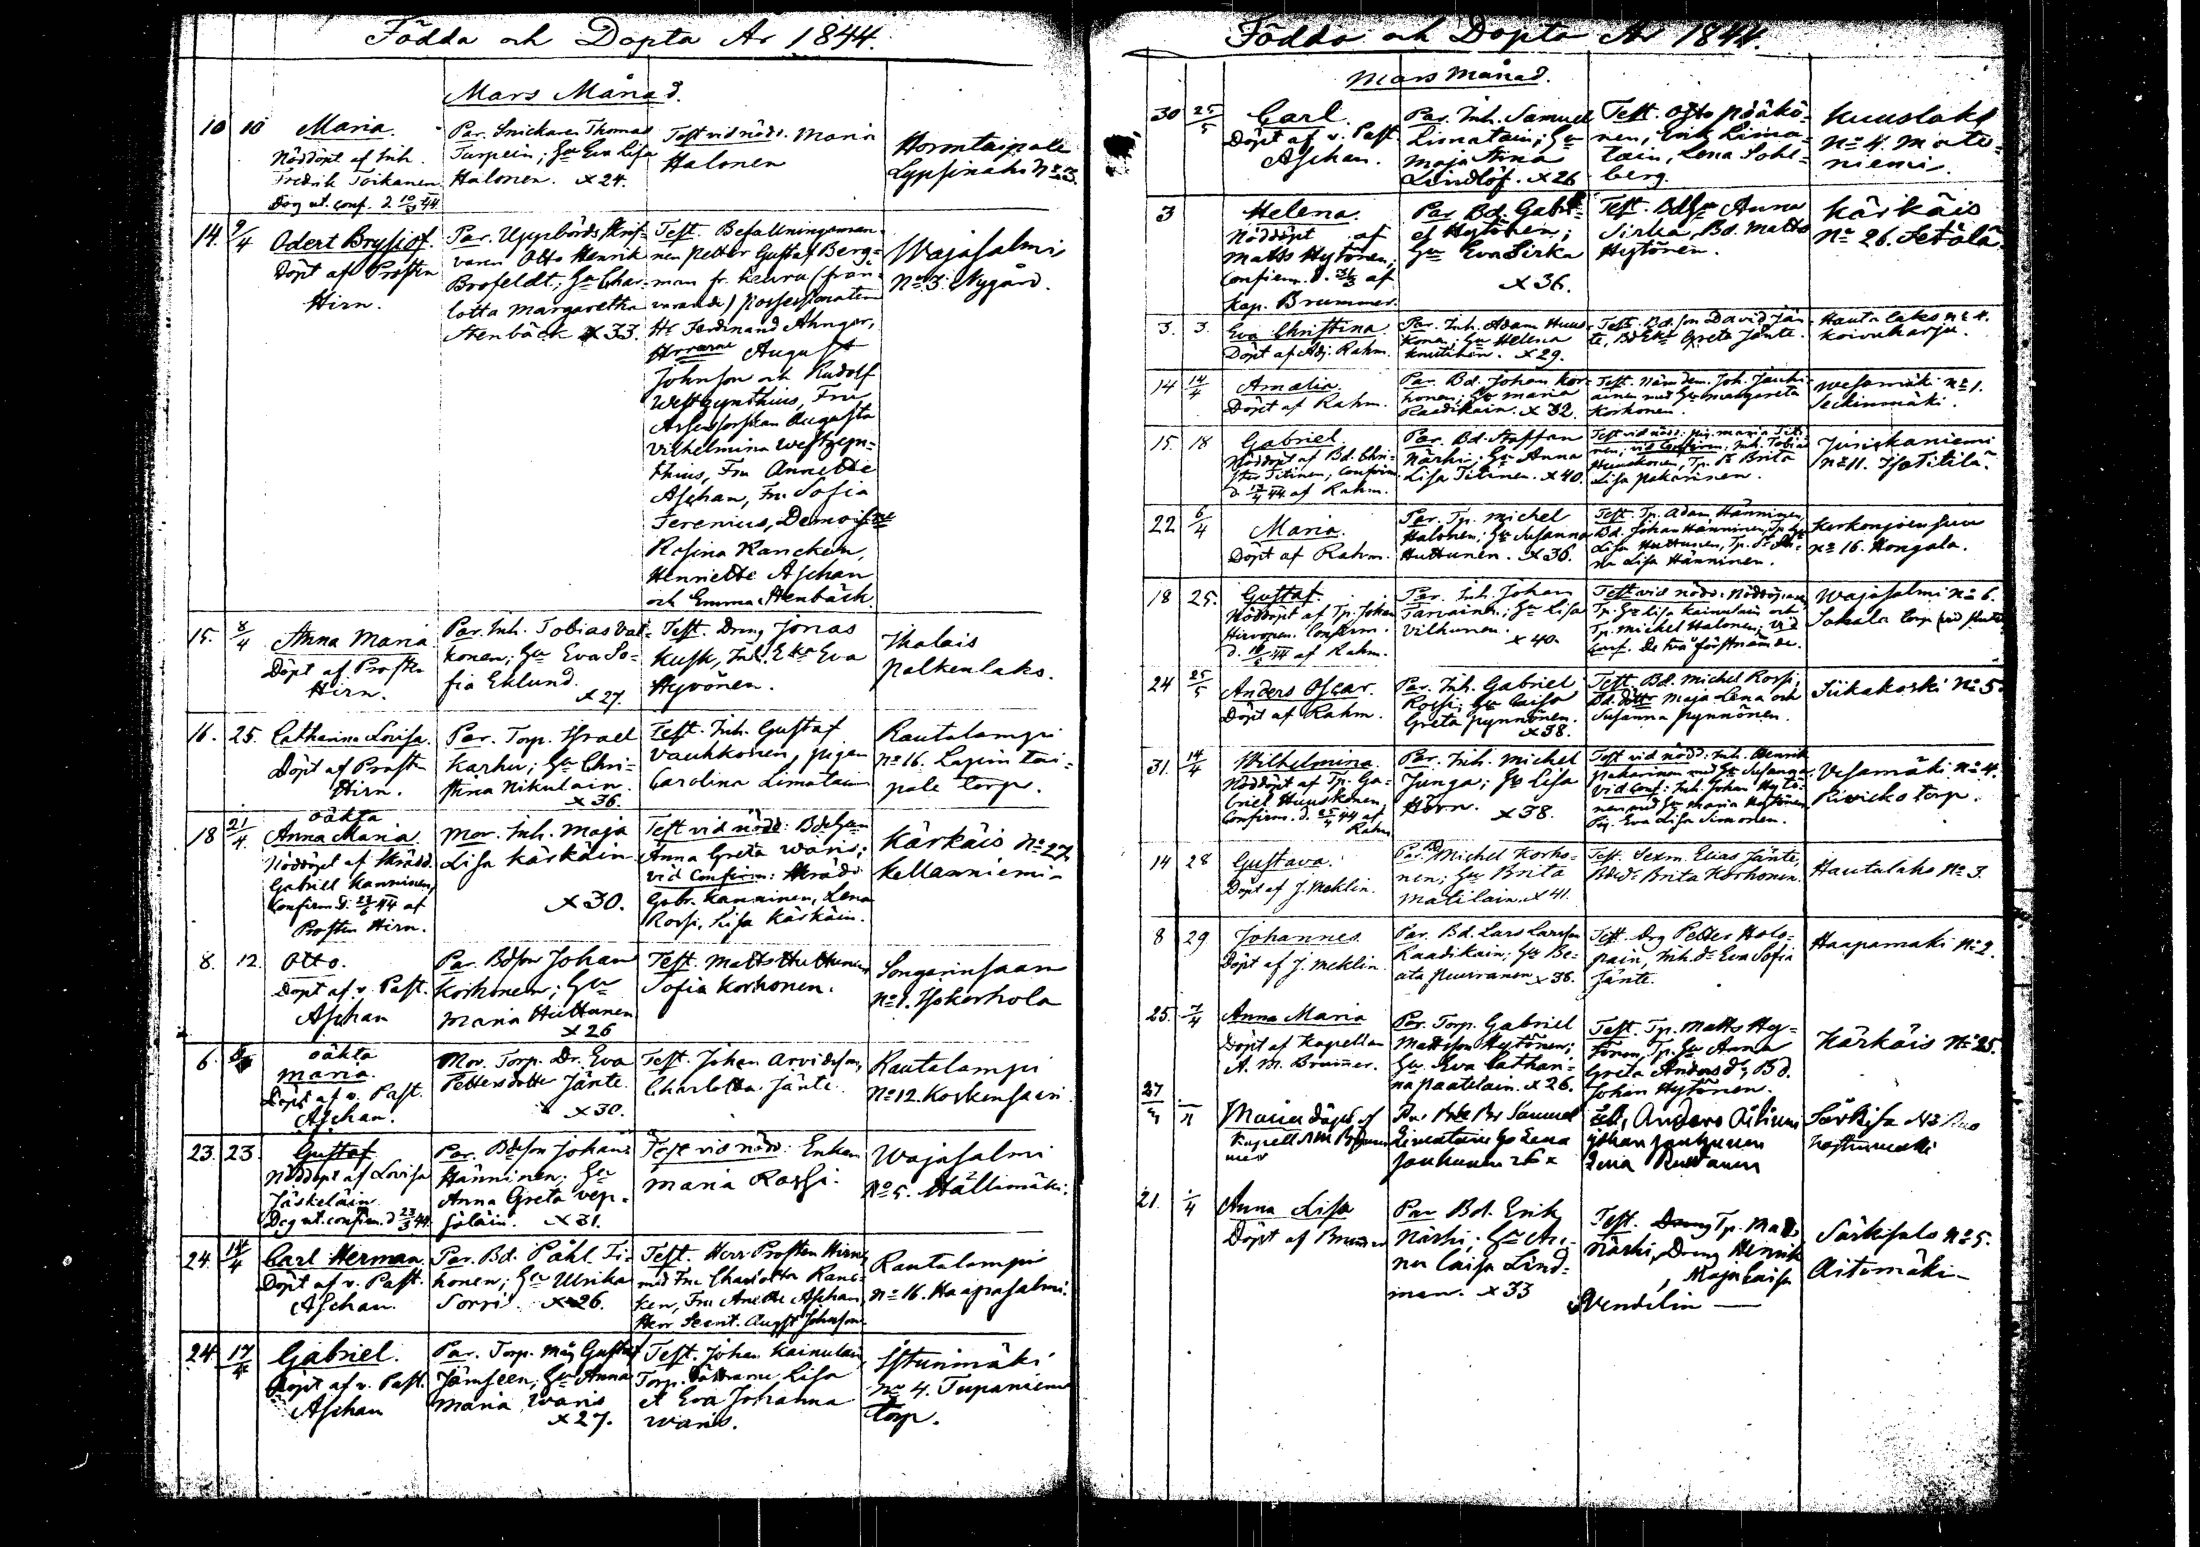 Födda och Döpta År 1844.
Mars Månad.
10 10 Maria.
Nöddöpt af Inh.
Fredrik Toikanen
Dog ut. conf. d. 10/3 44.
Par. Snickaren Thomas
Turpein; Hu Eva Lisa
Halonen. x 24.
Test vid nöd. Maria
Halonen
Horontaipale
Lypsinaho No 3.
14. 9/4 Odert Brysiof.
Döpt af Prosten
Hirn.
Par. Uppbörds Skrif-
varen Otto Henrik
Brofeldt; Hu Char-
lotta Margaretha
Stenbäck x 33.
Test. Befallningsman-
nen Petter Gustaf Berg-
man fr. (från-
varande) Possessionaten
Hr Ferdinand Ahnger,
Herrarne August
Johnson och Rudolf
Westzynthius, Fru
Assessorskan Augusta
Vilhelmina Westzyn-
thius, Fru Annette
Aschan, Fru Sofia
Ferenius, Demois:ne
Rosina Rancken,
Henriette Aschan
och Emma Stenbäck.
Wajasalmi
No 3. Nygård.
15. 8/4 Anna Maria
Döpt af Prosten
Hirn.
Par. Inh. Tobias Vat-
konen; Hu Eva So-
fia Eklund.
x 27.
Test. Dreng Jonas
Kusk, Inh. Eka Eva
Hyvönen.
Ihalais
Palkenlaks.
16. 25. Catharina Lovisa.
Döpt af Prosten
Hirn.
Par. Torp. Israel
Karhu; Hu Chri-
stina Nikulain.
x 36.
Test. Inh. Gustaf
Vauhkonen, pigan
Carolina Limatain
Rautalampi
No 16. Lapin tai-
pale torp.
18 21/4 oäkta
Anna Maria
Nöddöpt af Skrädd.
Gabriel Kanninen,
Confirm d. 23/6 44 af
Prosten Hirn.
Mor. Inh. Maja
Lisa Kärkäin
x 30.
Test vid nöd: Bde Hu
Anna Greta Waris;
vid Confirm: Skrädd.
Gabr. Kanninen, Lena
Rossi, Lisa Kärkäin.
Kärkäis No 27.
Kellanniemi
8. 12. Otto.
Döpt af v. Past.
Aschan
Par. Bdson Johan
Korhonen; Hu
Maria Huttunen
x 26
Test. Matts Huttunen,
Sofia Korhonen.
Songarinsaare
No 1. Isokerhola
6. oäkta
Maria.
Döpt af v. Past.
Aschan.
Mor. Torp. Dr. Eva
Pettersdotter Jänte.
x 30.
Test. Johan Arvidsson,
Charlotta Jänte.
Rautalampi
No 12. Korkensaari
23. 23. Gustaf
Nöddöpt af Lovisa
Jäskeläin
Dog ut. confirm. d 23/3 44.
Par. Bdeson Johan
Hänninen; Hu
Anna Greta Vep-
säläin. x 31.
Test vid nöd: Enkan
Maria Rossi.
Wajasalmi
No 5. Hällimäki.
24. 14/4 Carl Herman
Döpt af v. Past.
Aschan.
Par. Bd. Påhl Ti-
honen; Hu Ulrika
Sorri. x 26.
Test. Herr Prosten Hirn
med Fru Charlotta Ranc-
ken, Fru Anette Aschan,
Herr Stent. August Johnson.
Rautalampi
No 16. Haapasalmi.
24. 17/4 Gabriel.
Döpt af v. Past.
Aschan
Par. Torp. Måg Gustaf
Jämseen; Hu Anna
Maria Waris
x 27.
Test. Johan Kainulain,
Torp. Döttrarne Lisa
et Eva Johanna
Waris.
Istunmäki
No 4. Tupaniemi
torp.
Födda och Döpta År 1844.
Mars Månad.
30 25/5 Carl.
Döpt af v. Past.
Aschan.
Par. Inh. Samuel
Limatain; Hu
Maja Stina
Lindlöf. x 26
Test. Otto Pääkö-
nen, Erik Lima-
tain, Lena Sohl-
berg.
Kuuslaks
No 4. Mate-
niemi.
3 Helena.
Nöddöpt af
Matts Hytönen,
Confirm. d. 31/3 af
Kap. Brummer.
Par Bd. Gabri-
el Hytönen;
Hu Eva Sirka
x 36.
Test. Bdehu Anna
Sirka, Bd. Matts
Hytönen.
Kärkäis
No 26. Setälä.
3. 3. Eva Christina.
Döpt af Adj. Rahm.
Par. Inh. Adam Huus-
konen; Hu Helena
Knutinen. x 29.
Test. Bd.son David Jän-
te, Bdeka Greta Jänte.
Hautalaks No 4.
Koivuharju.
14 14/4 Amalia.
Döpt af Rahm.
Par. Bd. Johan Kor-
honen; Hu Maria
Raedikain. x 32.
Test. Nämdem. Joh. Jauhi-
ainen med Hu Margareta
Korhonen.
Wesamäki No 1.
Seckinmäki.
15. 18 Gabriel.
Nöddöpt af Bd. Chri-
ster Titinen, Confirm.
d. 14/4 44 af Rahm.
Par. Bd. Staffan
Närhi; Hu Anna
Lisa Titinen. x 40.
Test vid nöd: pig. Maria Titi-
nen; vid Confirm, Inh. Tobias
Huuskonen, Tp. Dr Brita
Lisa Pakarinen.
No 11. Iso Titilä.
22 6/4 Maria.
Döpt af Rahm.
Par. Tp. Michel
Halonen; Hu Susanna
Huttunen. x 36.
Test. Tp. Adam Hänninen,
Bd. Johan Hänninen, Tp. Hu
Lisa Huttunen, Tp. Dr
Lisa Hänninen.
Kerkonjoensuu
No 16. Hongala.
18 25. Gustaf.
Nöddöpt af Tp. Johan
Hirvonen. Confirm.
d. 44 af Rahm.
Par. Inh. Johan
Tarvainen; Hu Lisa
Vilhunen.
x 40.
Test vid nöd: Nöddöparen
Tp. Hu Lisa Kainulain och
Tp. Michel Halonen; vid
conf. De två förstnämde.
Wajasalmi No 6.
Sakala torp
24 25/5 Anders Oscar.
Döpt af Rahm.
Par. Inh. Gabriel
Rossi; Hu Caisa
Greta Pynnönen.
x 38.
Test. Bd. Michel Rossi,
Bd. dottr Maja Lena och
Susanna Pynnönen.
Siikakoski No 5.
31. 14/4 Wilhelmina
Nöddöpt af Tp. Ga-
briel Huuskonen,
Confirm. d. 25/4 44 af
Rahm
Par. Inh. Michel
Junga; Hu Lisa
Höörn. x 38.
Test vid nöd: Inh. Henrik
Pakarinen med Hu Susanna.
Vid conf: Inh. Johan Hytö-
nen med Hu Maria Hytönen
Pig. Eva Lisa Simonen.
Vesamäki No 4.
Rivicko torp.
14 28 Gustava.
Döpt af J. Mehlin.
Par. Bd Michel Korho-
nen; Hu Brita
Matilain. x 41.
Test. Sexm. Elias Jänte,
Bded. Brita Korhonen.
Hautalaks No 3.
8 29 Johannes.
Döpt af J. Mehlin.
Par. Bd. Lars Larsson
Raadikain; Hu Be-
ata Puurunen x 36.
Test. Drg Petter Halo-
pain, Inh. d. Eva Sofia
Jänte.
Haapamäki No 2.
25. 7/4 Anna Maria
Döpt af Kapellan
A. M. Brumer.
Par. Torp. Gabriel
Mattsson Hytönen;
Hu Eva Cathari-
na Paatelain. x 26.
Test. Tp. Matts Hy-
tönen, Tp. Hu Anna
Greta Anders d., Bd.
Johan Hytönen.
Kärkäis No 25.
27 Maria döpt af
Kapell AM Brum
mer
Samuel
Limatain Hu Lena
Jauhiainen 26 x
Anders
Johan Jauhiainen
Särkisa
21. 4 Anna Lisa
Döpt af Brumer
Par Bd. Erik
Närhi; Hu An-
na Caisa Lind-
man. x 33
Test. Tp. Matts
Närhi, Dreng Henrik
, Maja Caisa
Wendelin
Särkisalo No 5.
Aitomäki